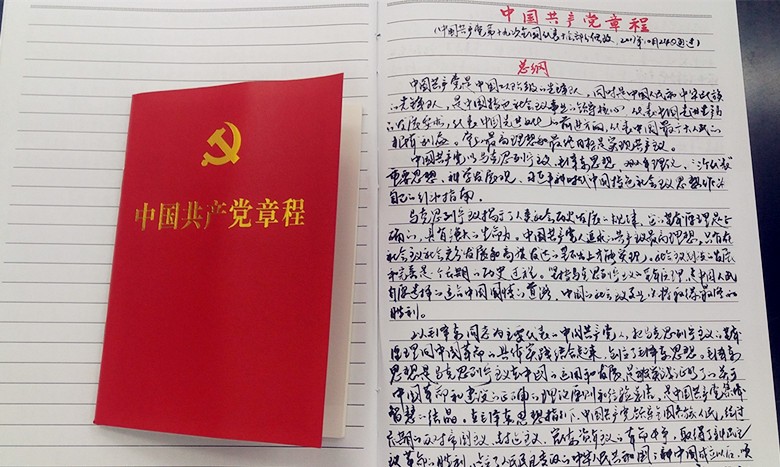 中国共产党章程
中国共产党章程
(中国共产党第十九次全国代表大会部分修改,2017年10月24日通过)
总纲
中国共产党是中国工人阶级的先锋队,同时是中国人民和中华民族
的先锋队,是中国特色社会主义事业的领导核心,代表中国先进生产力
的发展要求,代表中国先进文化的前进方向,代表中国最广大人民的
根本利益。党的最高理想和最终目标是实现共产主义。
中国共产党以马克思列宁主义、毛泽东思想、邓小平理论、“三个代表”
重要思想、科学发展观、习近平新时代中国特色社会主义思想作为
自己的行动指南。
马克思列宁主义揭示了人类社会历史发展的规律,它的基本原理是正
确的,具有强大的生命力。中国共产党人追求的共产主义最高理想,只有在
社会主义社会充分发展和高度发达的基础上才能实现。社会主义制度的发展
和完善是一个长期的历史过程。坚持马克思列宁主义的基本原理,走中国人民
自愿选择的适合中国国情的道路,中国的社会主义事业必将取得最终的
胜利。
以毛泽东同志为主要代表的中国共产党人,把马克思列宁主义的基本
原理同中国革命的具体实践结合起来,创立了毛泽东思想。毛泽东
思想是马克思列宁主义在中国的运用和发展,是被实践证明了的关于
中国革命和建设的正确的理论原则和经验总结,是中国共产党集体
智慧的结晶。在毛泽东思想指引下,中国共产党领导全国各族人民,经过
长期的反对帝国主义、封建主义、官僚资本主义的革命斗争,取得了新民主主
义革命的胜利,建立了人民民主专政的中华人民共和国;新中国成立以后,顺